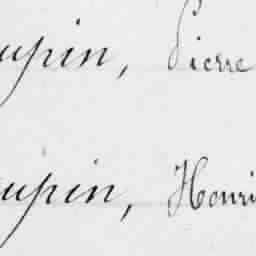 upin, Pierre
upin, Henri